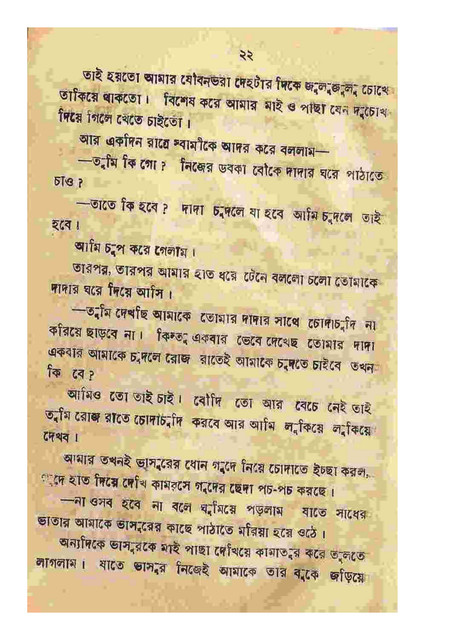 ২২
তাই হয়তো আমার যৌবনভরা দেহটার দিকে জ্বলজ্বল চোখে
তাকিয়ে থাকতো। বিশেষ করে আমার মাই ও পাছা যেন দুচোখ
দিয়ে গিলে খেতে চাইতো।
আর একদিন রাত্রে স্বামীকে আদর করে বললাম—
—তুমি কি গো? নিজের ডবকা বৌকে দাদার ঘরে পাঠাতে
চাও?
—তাতে কি হবে? দাদা চুদলে যা হবে আমি চুদলে তাই
হবে।
আমি চুপ করে গেলাম।
তারপর, তারপর আমার হাত ধরে টেনে বললো চলো তোমাকে
দাদার ঘরে দিয়ে আসি।
—তুমি দেখছি আমাকে তোমার দাদার সাথে চোদাচুদি না
করিয়ে ছাড়বে না। কিন্তু একবার ভেবে দেখেছ তোমার দাদা
একবার আমাকে চুদলে রোজ রাতেই আমাকে চুদতে চাইবে তখন
কি বে?
আমিও তো তাই চাই। বৌদি তো আর বেচে নেই তাই
তুমি রোজ রাতে চোদাচুদি করবে আর আমি লুকিয়ে লুকিয়ে
দেখব।
আমার তখনই ভাসুরের ধোন গুদে নিয়ে চোদাতে ইচ্ছা করল,
গুদে হাত দিয়ে দেখি কামরসে গুদের ছেদা পচ-পচ করছে।
—না ওসব হবে না বলে ঘুমিয়ে পড়লাম যাতে সাধের
ভাতার আমাকে ভাসুরের কাছে পাঠাতে মরিয়া হয়ে ওঠে।
অন্যদিকে ভাসুরকে মাই পাছা দেখিয়ে কামাতুর করে তুলতে
লাগলাম। যাতে ভাসুর নিজেই আমাকে তার বুকে জড়িয়ে